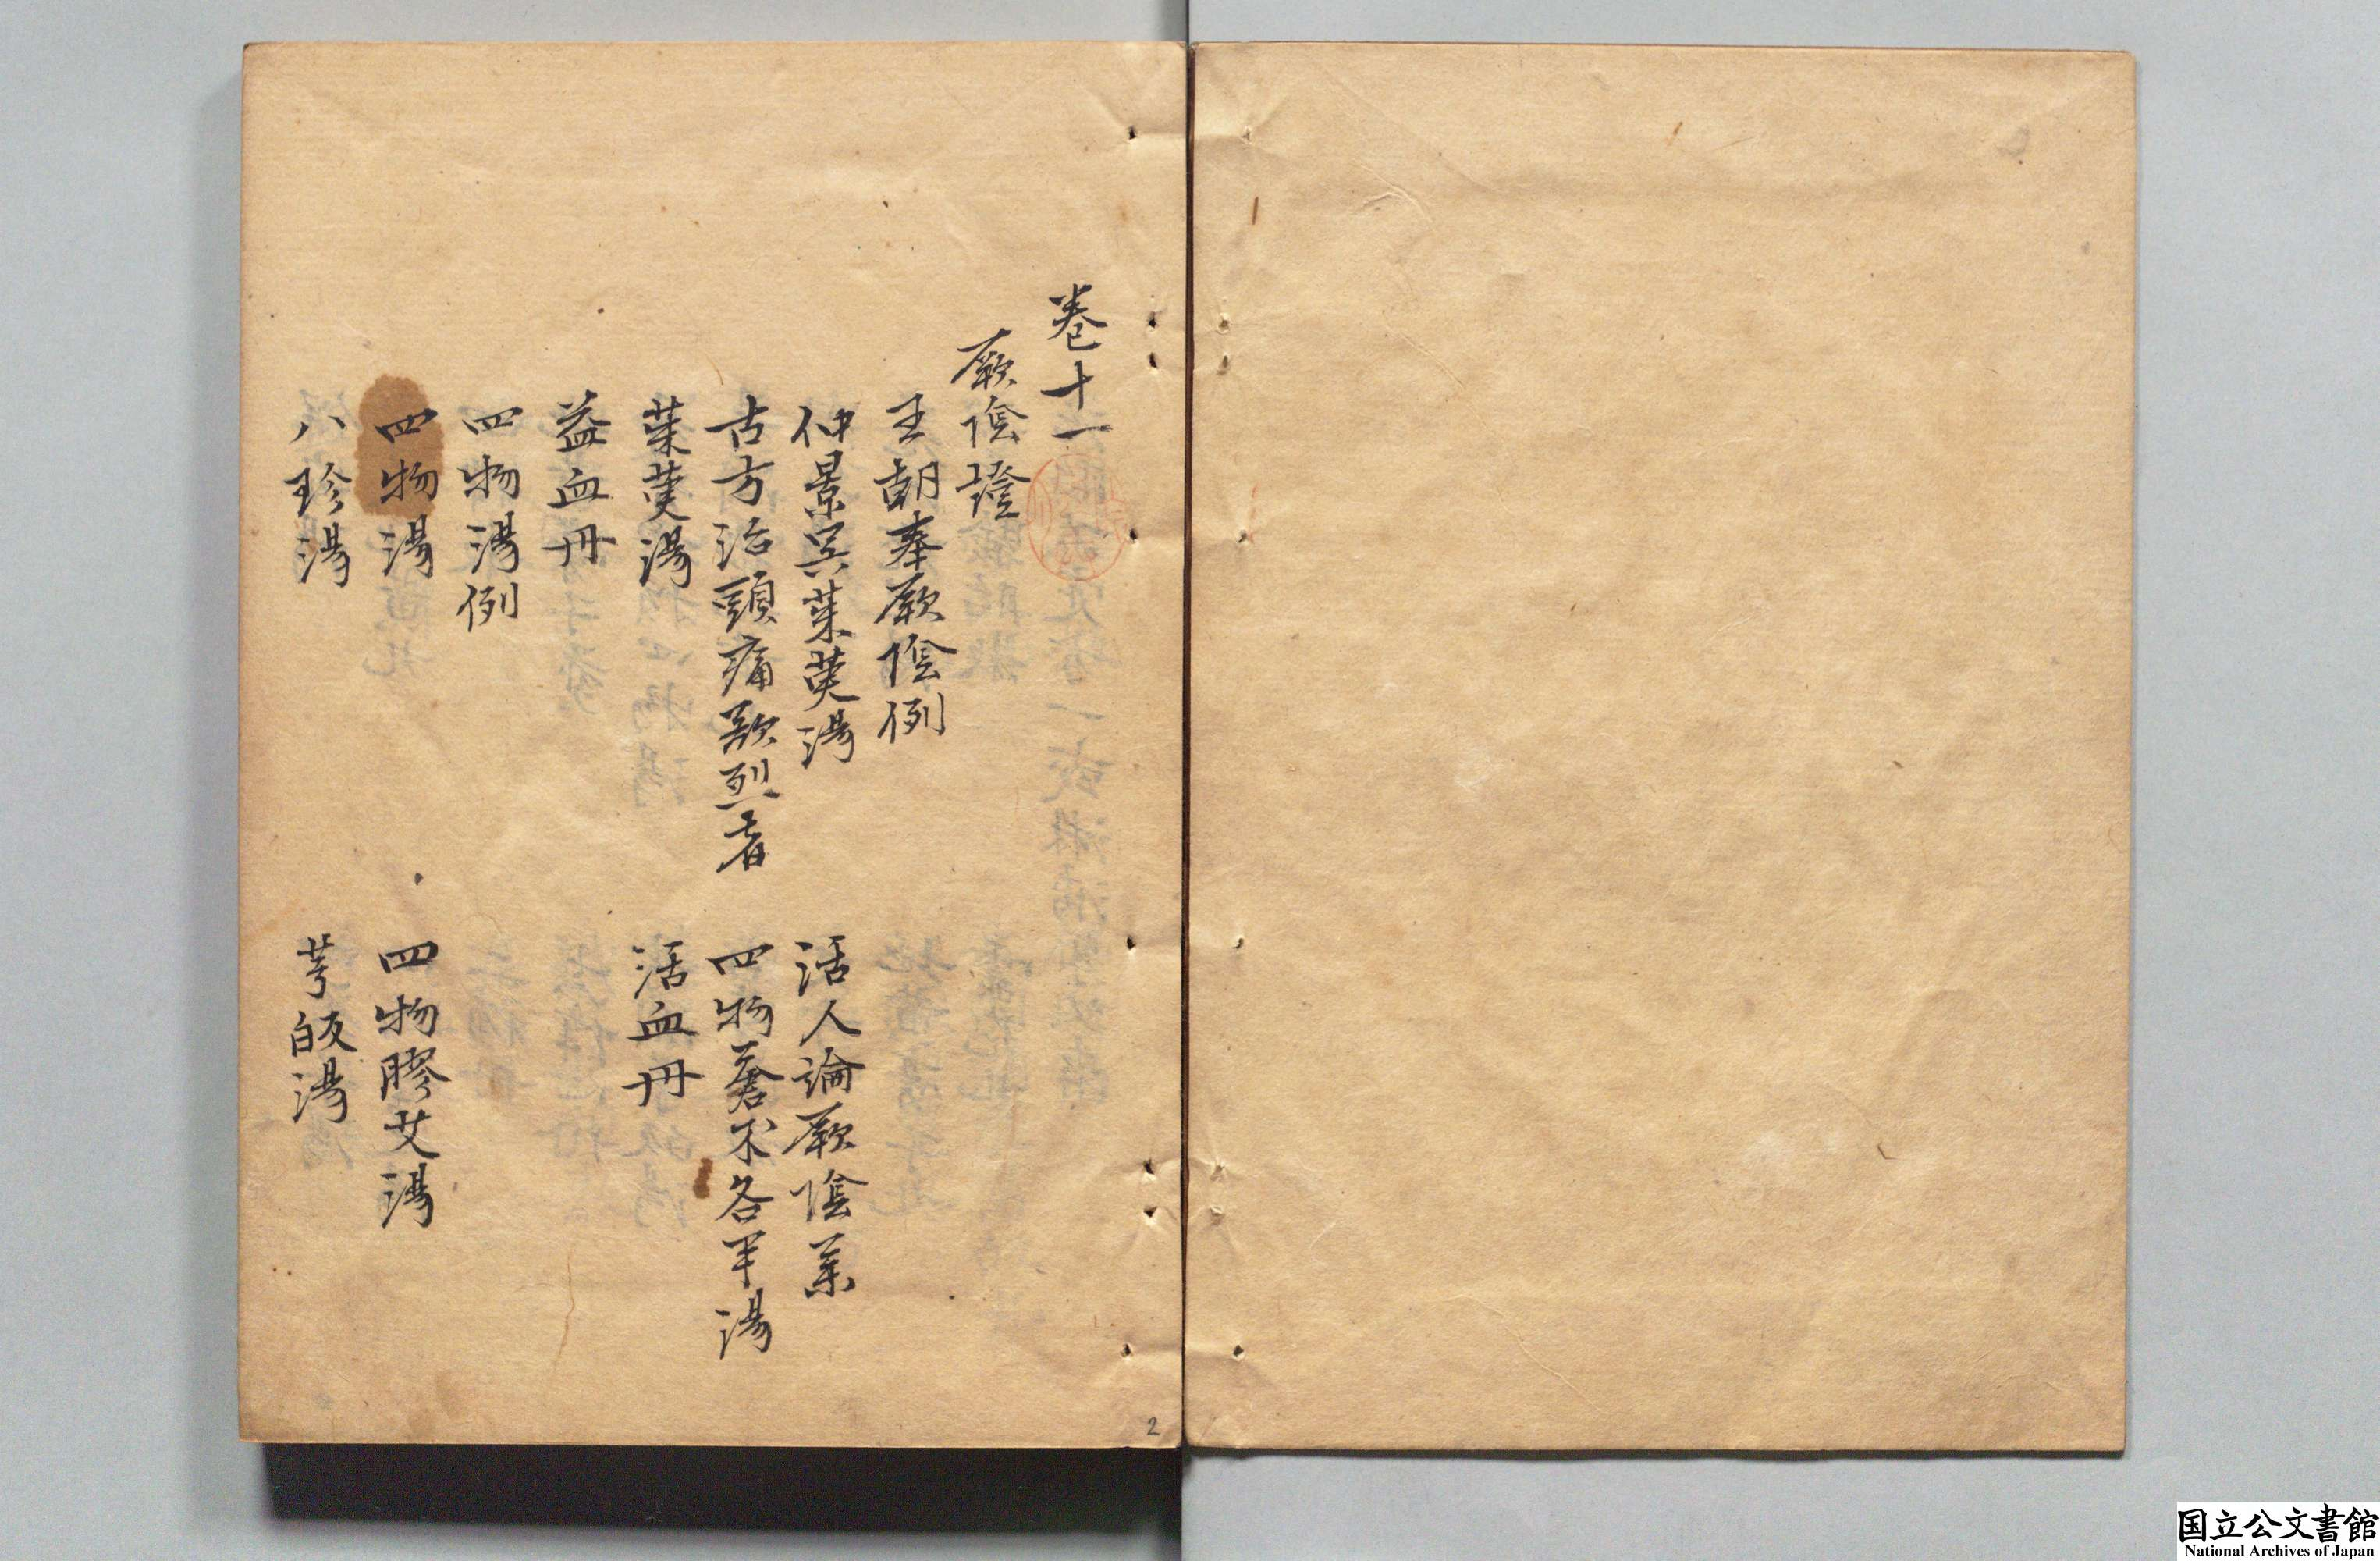 卷十一
厥陰證
王朝奉厥陰例
仲景吳茱萸湯
活人論厥陰藥
古方治頭痛欲裂者
四物蒼朮各半湯
茱萸湯
活血丹
益血丹
四物湯例
四物湯
四物膠艾湯
八珍湯
芎皈湯
2
国立公文書館
National Archives of Japan